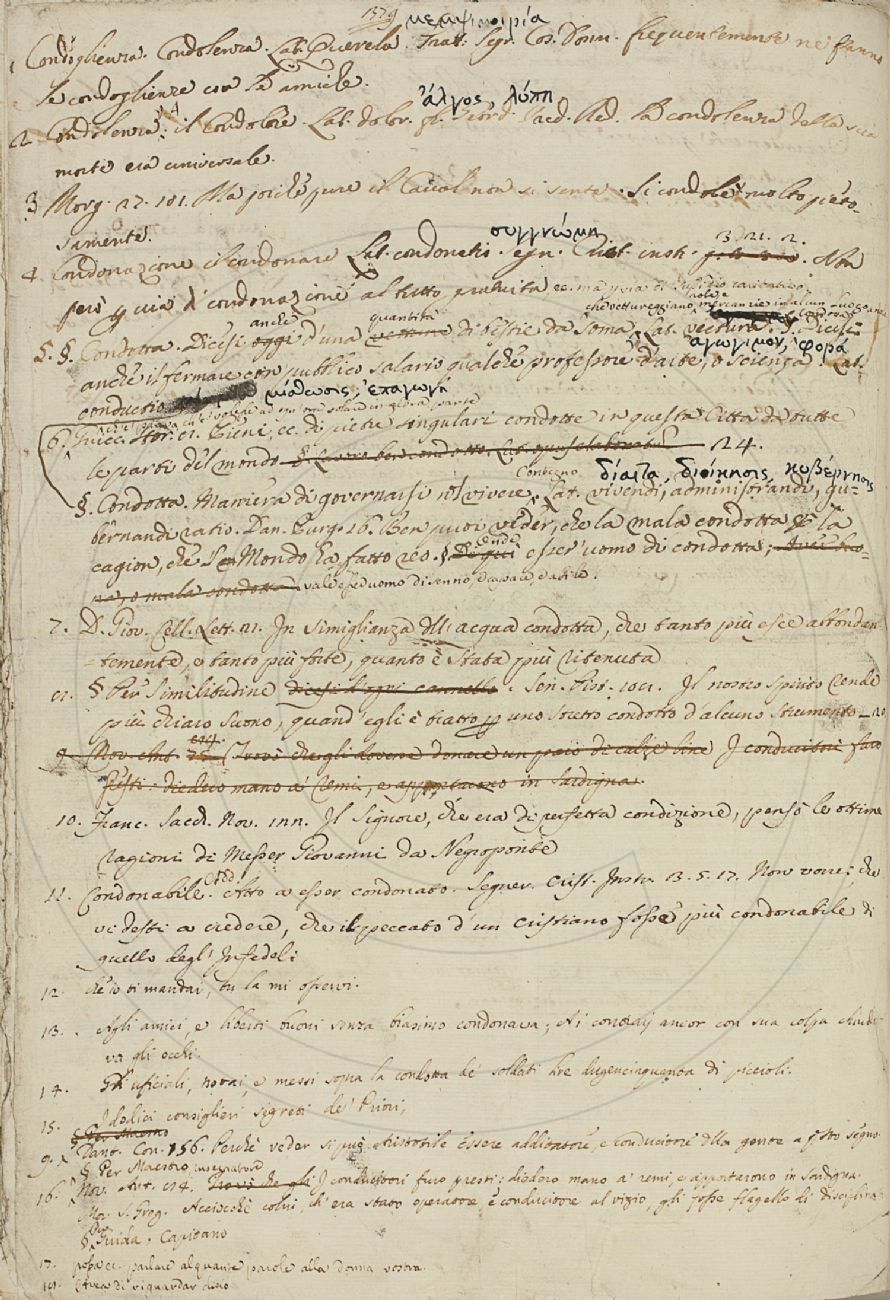 1579 μεμψιμοιρία
1 Condoglienza. Condolenza. Lat. Querela. Tratt. Segr. Cos. Donn. frequentemente ne fanno
le condoglienze con le amiche.
2 Condolenza; il Condolere. Lat. dolor. ἄλγος, λύπη Red. La condolenza della sua
morte era universale.
3 Morg. 27. 101. Ma poichè pure il Caval non si sente. Si condolè molto pieto-
samente.
4. Condonazione il condonare Lat. condonatio. συγγνώμη Segn. Crist. instr. 3. 21. 2. Non
però p via di condonazione al tutto gratuita ec. ma p via di sussidio caritativo.
che vettureggiano mercanzie in alcun luogo
§. §. Condotta. Dicesi anche d'una quantità di bestie da Soma, Lat. vectura. ἀγώγιμον, φορά §. Dicesi
anche il fermare con pubblico salario qualche professore d'arte, o scienza. Lat.
conductio μίσθωσις, ἐπαγωγή
6. Guicc. Stor. ec. di pietre singulari condotte in questa Città da tutte
le parti del mondo 24.
§. Condotta. Maniera di governarsi nel vivere, Contegno Lat. vivendi, administrandi, gu-
δίαιτα, διοίκησις, κυβέρνησις
bernandi ratio. Dan. Purg. 16. Ben puoi veder, che la mala condotta E' la
cagion, che 'l Mondo ha fatto reo. § Onde esser uomo di condotta;
vale esser uomo di senno, e capace d'abile.
7. D. Giov. Cell. Lett. 21. In simiglianza dell'acqua condotta, che tanto più esce abbondan-
temente, e tanto più forte, quanto è stata più ritenuta
§ Per similitudine. Sen. Pist. 108. Il nostro spirito rende
più chiaro suono, quand'egli è tratto p uno stretto condotto d'alcuno strumento
9. Nov. Ant. Trovò che gli doveva donare un paio di calze line I conducitori furo
presti: diedero mano a' remi, e apportarono in Sardigna.
10. Franc. Sacch. Nov. 188. Il Signore, che era di perfetta condizione, pensò le ottime
ragioni di Messer Giovanni da Negroponte
11. Condonabile. Add. Atto a esser condonato. Segner. Crist. Instr. 13. 5. 17. Non vorrei che
vi desti a credere, che il peccato d'un cristiano fosse più condonabile di
quello degl'Infedeli
12. ch'io ti mandai, tu la mi osservi.
13. Agli amici, e liberti buoni senza biasimo condonava; Ai contrarj ancor con sua colpa chiude-
va gli occhi.
14. Gli uficiali, notai, e messi sopra la condotta de' soldati lire dugencinquanta di piccioli.
15. I dodici consiglieri segreti de' Priori,
§ Per Maestro
9. Dant. Con. 156. Perchè veder si può Aristotile essere additatore, e conducitore della gente a questo segno.
§. Per Maestro, insegnatore
16. Nov. Ant. I conducitori furo presti: diedero mano a' remi, e apportarono in Sardigna.
Mor. S. Greg. Acciocchè colui, ch'era stato operatore, e conducitore al vizio, gli fosse flagello di disciplina
§. Guida, Capitano
17. possa ec. parlare alquante parole alla donna vostra.